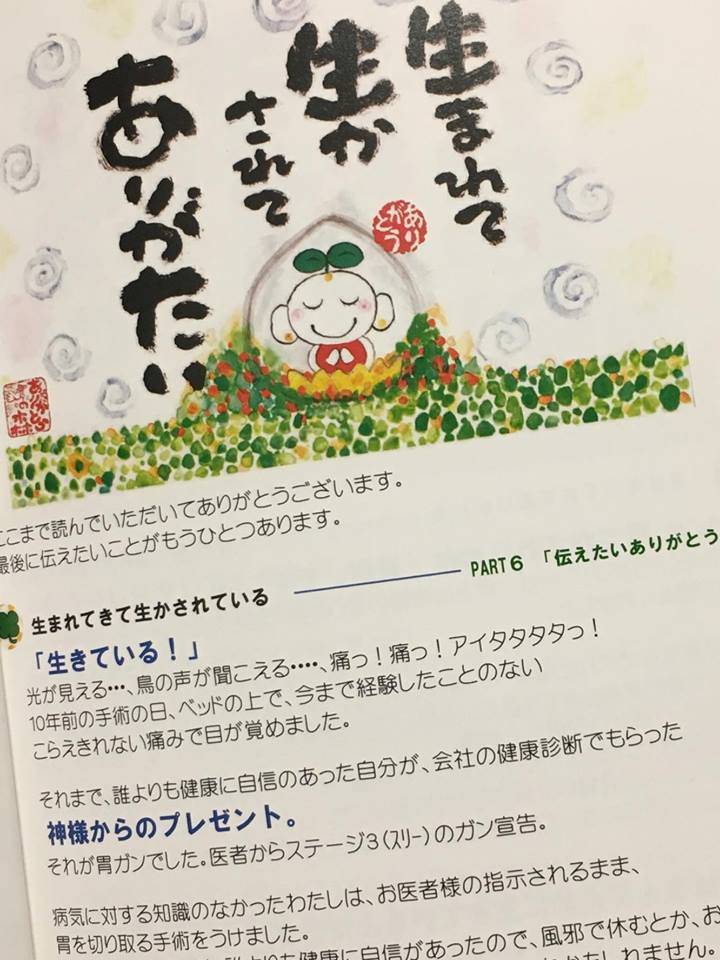 生まれて
生か
されて
ありがたい
ありがとう
ここまで読んでいただいてありがとうございます。
最後に伝えたいことがもうひとつあります。
PART6 「伝えたいありがとう
生まれてきて生かされている
「生きている！」
光が見える・・・、鳥の声が聞こえる・・・・、痛っ！痛っ！アイタタタタっ！
10年前の手術の日、ベッドの上で、今まで経験したことのない
こらえきれない痛みで目が覚めました。
それまで、誰よりも健康に自信のあった自分が、会社の健康診断でもらった
神様からのプレゼント。
それが胃ガンでした。医者からステージ3(ｽﾘｰ)のガン宣告。
病気に対する知識のなかったわたしは、お医者様の指示されるまま、
胃を切り取る手術をうけました。
誰よりも健康に自信があったので、風邪で休むとか、お
かもしれません。